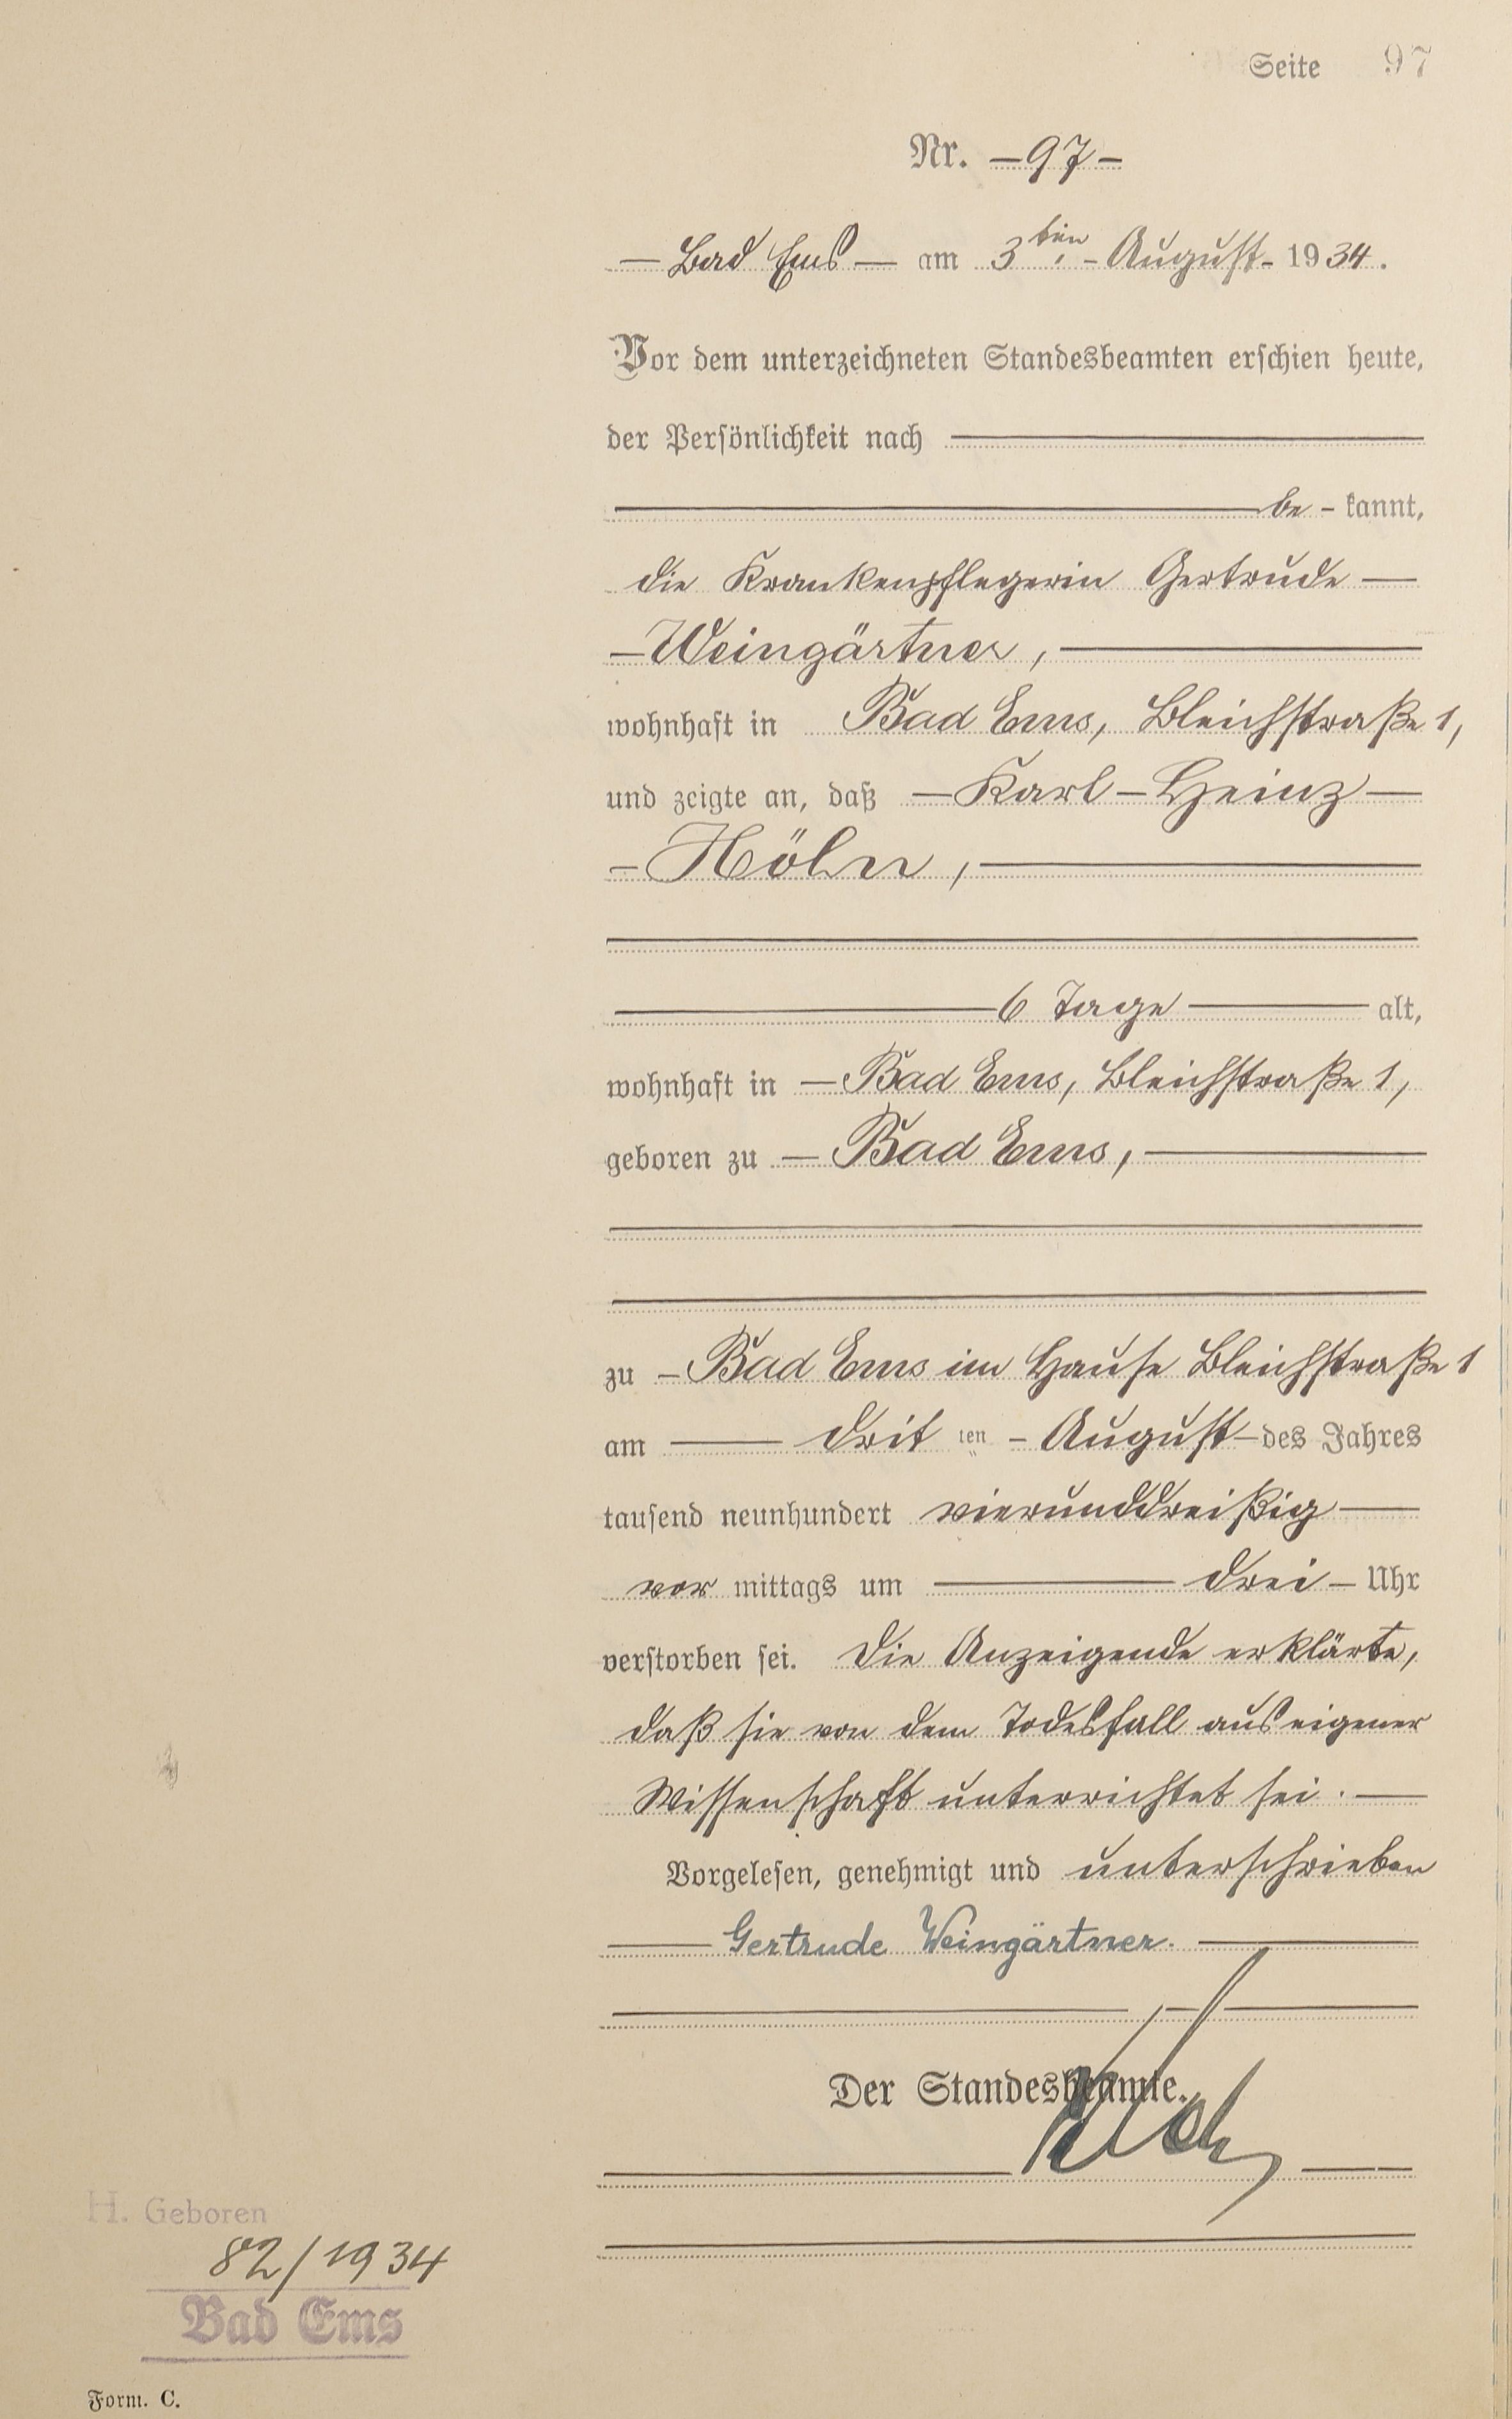 Seite 97
Nr. — 97 —
— Bad Ems — am 3ten - August - 1934.
Vor dem unterzeichneten Standesbeamten erschien heute,
der Persönlichkeit nach
be - kannt,
die Krankenpflegerin Gertrude —
— Weingärtner, —
wohnhaft in Bad Ems, Bleichstraße 1,
und zeigte an, daß — Karl - Heinz —
- Höhn, —
6 Tage — alt,
wohnhaft in — Bad Ems, Bleichstraße 1,
geboren zu — Bad Ems, —
zu - Bad Ems im Hause Bleichstraße 1
am — drit ten - August - des Jahres
tausend neunhundert vierunddreißig —
vor mittags um — drei - Uhr
verstorben sei. Die Anzeigende erklärte,
daß sie von dem Todesfall aus eigener
Wissenschaft unterrichtet sei. —
Vorgelesen, genehmigt und unterschrieben
— Gertrude Weingärtner. —
Der Standesbeamte.
H. Geboren
82/1934
Bad Ems
Form. C.